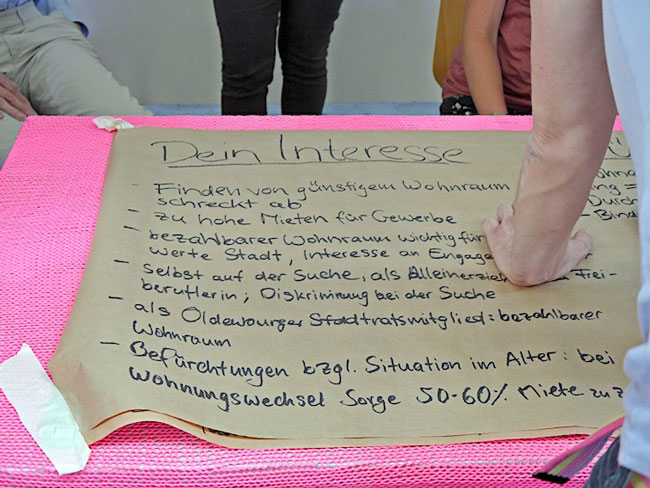 Dein Interesse
- Finden von günstigem Wohnraum
schreckt ab
- zu hohe Mieten für Gewerbe
- bezahlbarer Wohnraum wichtig für
werte Stadt, Interesse an Engage
- selbst auf der Suche, als Alleinerzieh Frei-
beruflerin; Diskriminung bei der Suche
- als Oldewourger Stadtratsmitglied: bezahlbarer
Wohnraum
- Befürchtungen bzgl. Situation im Alter: bei
Wohnungswechsel Sorge 50-60% Miete zu z
Ü
ohna
ng =
Durch
- Bind